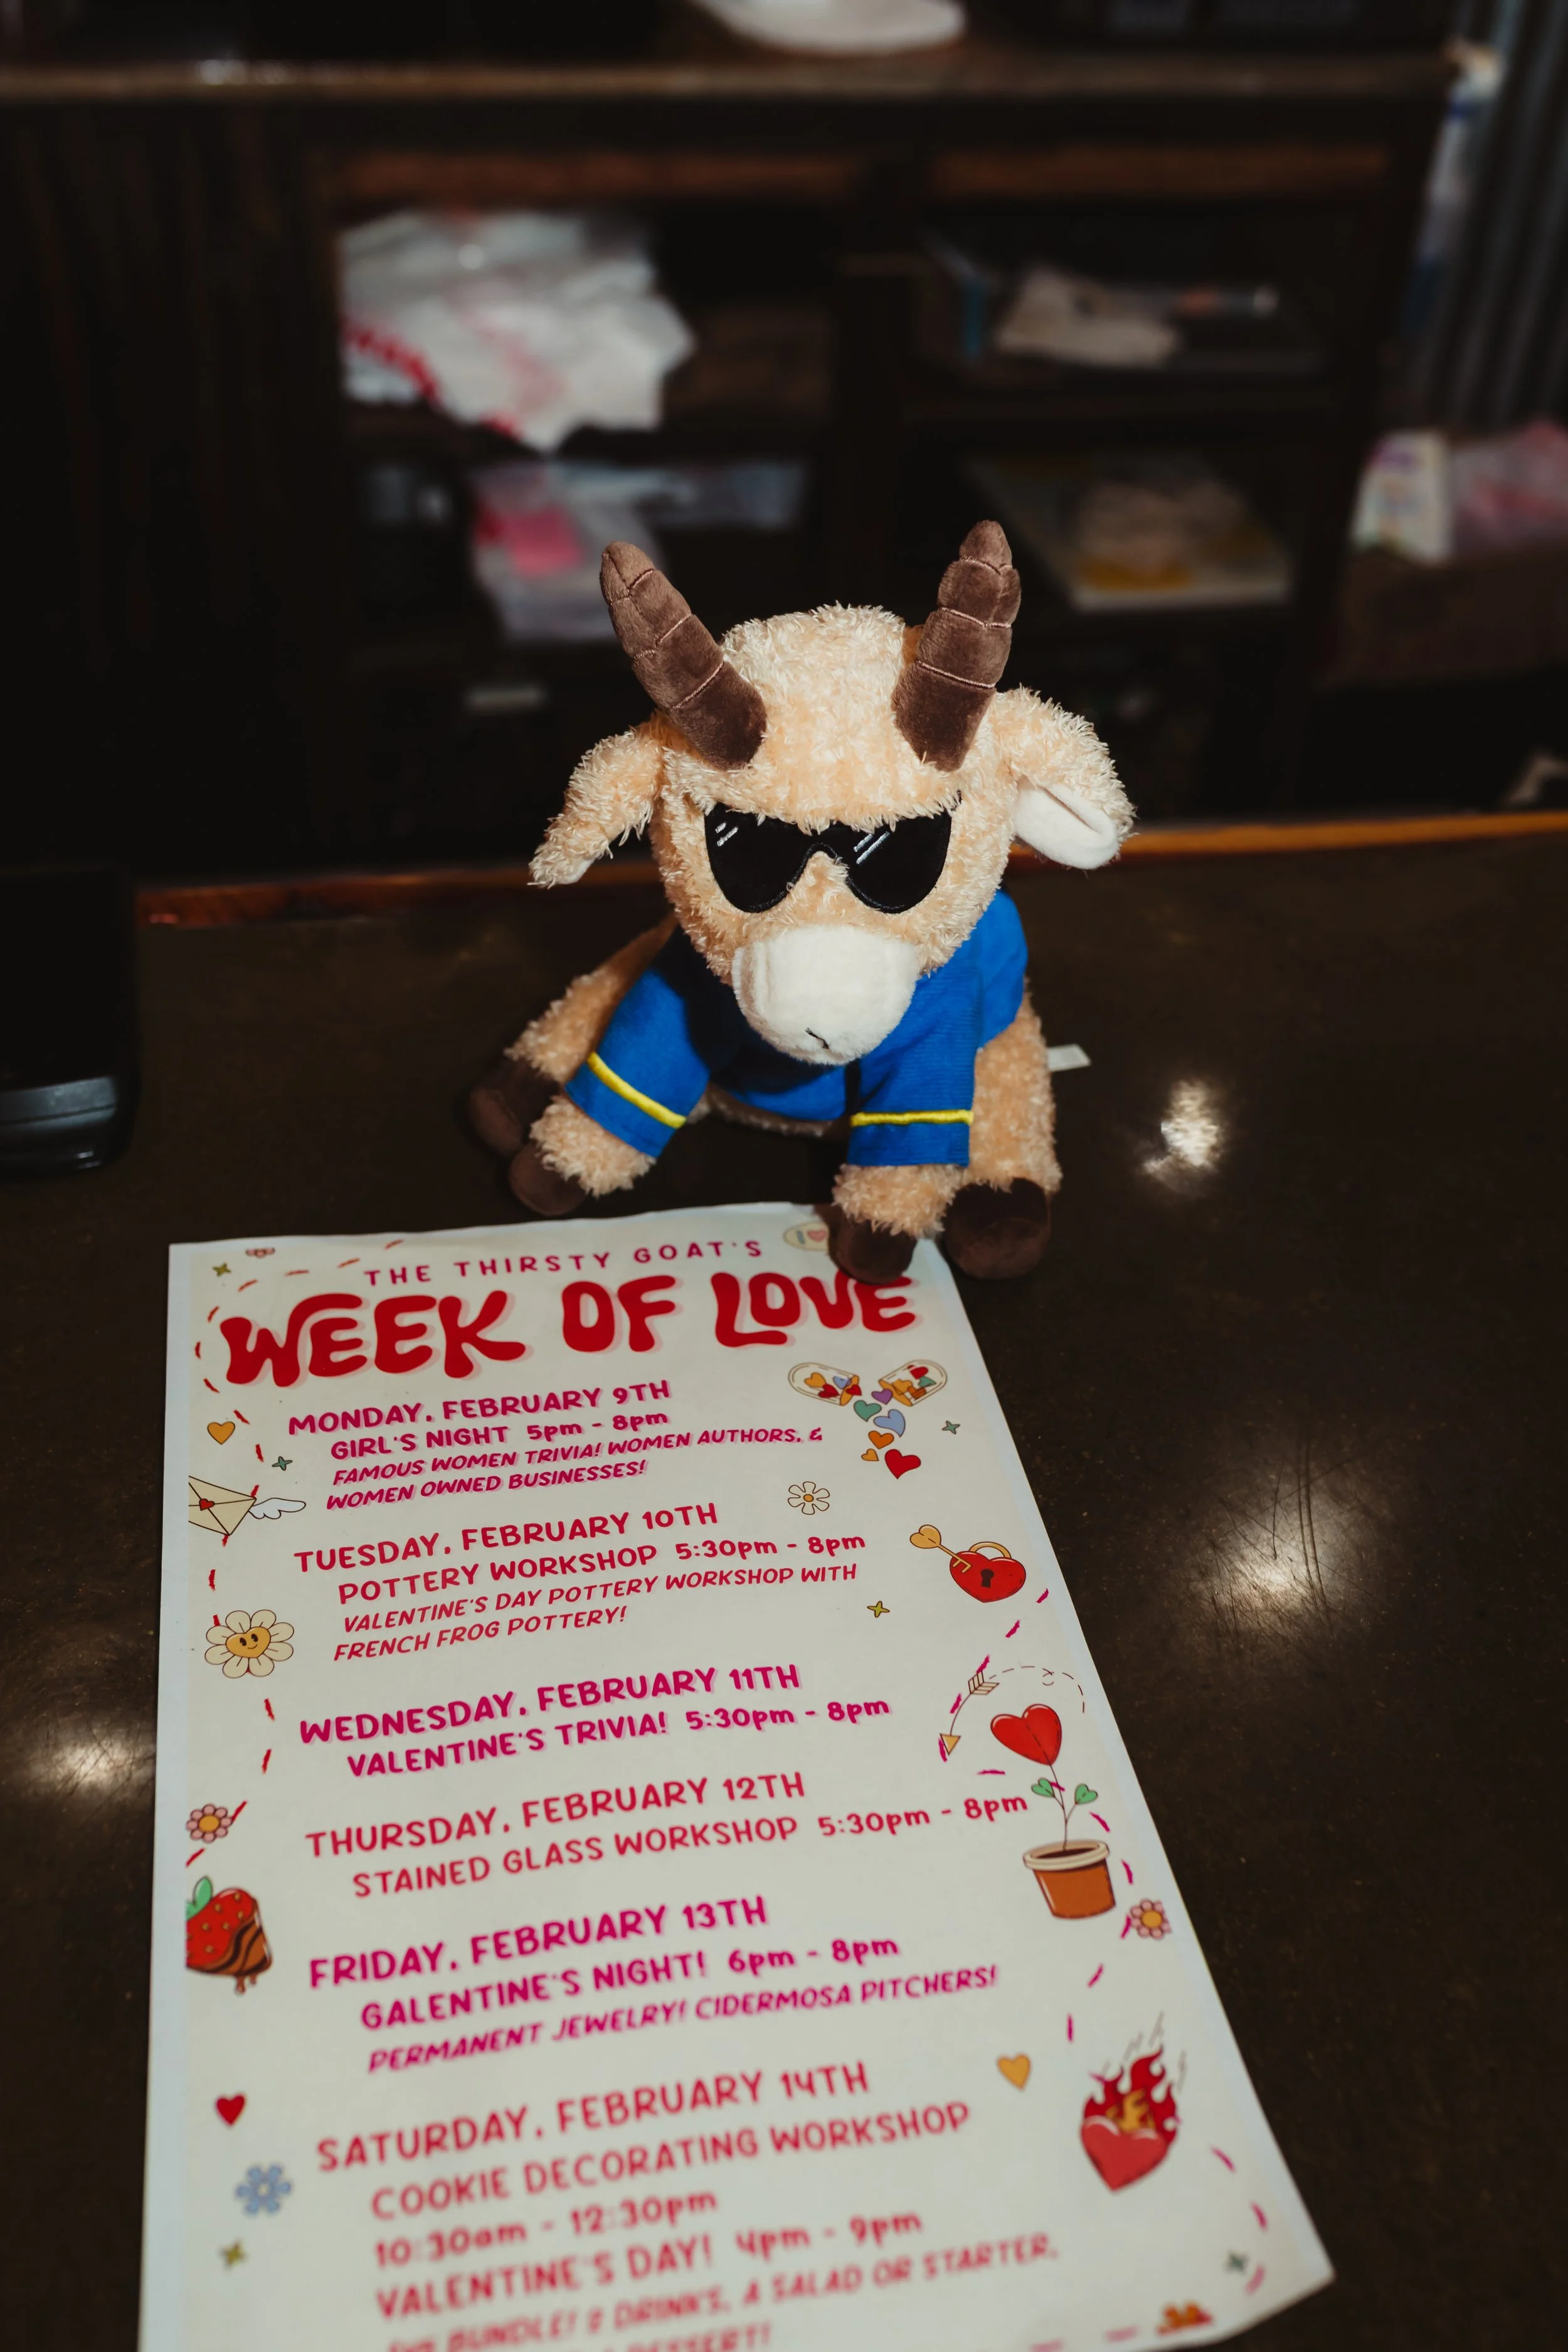 THE THIRSTY GOAT'S
WEEK OF LOVE
MONDAY, FEBRUARY 9TH
GIRL'S NIGHT 5pm - 8pm
FAMOUS WOMEN TRIVIA! WOMEN AUTHORS, &
WOMEN OWNED BUSINESSES!
TUESDAY, FEBRUARY 10TH
POTTERY WORKSHOP 5:30pm - 8pm
VALENTINE'S DAY POTTERY WORKSHOP WITH
FRENCH FROG POTTERY!
WEDNESDAY, FEBRUARY 11TH
VALENTINE'S TRIVIA! 5:30pm - 8pm
THURSDAY, FEBRUARY 12TH
STAINED GLASS WORKSHOP 5:30pm - 8pm
FRIDAY, FEBRUARY 13TH
GALENTINE'S NIGHT! 6pm - 8pm
PERMANENT JEWELRY! CIDERMOSA PITCHERS!
SATURDAY, FEBRUARY 14TH
COOKIE DECORATING WORKSHOP
10:30am - 12:30pm
VALENTINE'S DAY! 4pm - 9pm
BUNDLE! 2 DRINKS, A SALAD OR STARTER,
DESSERT!